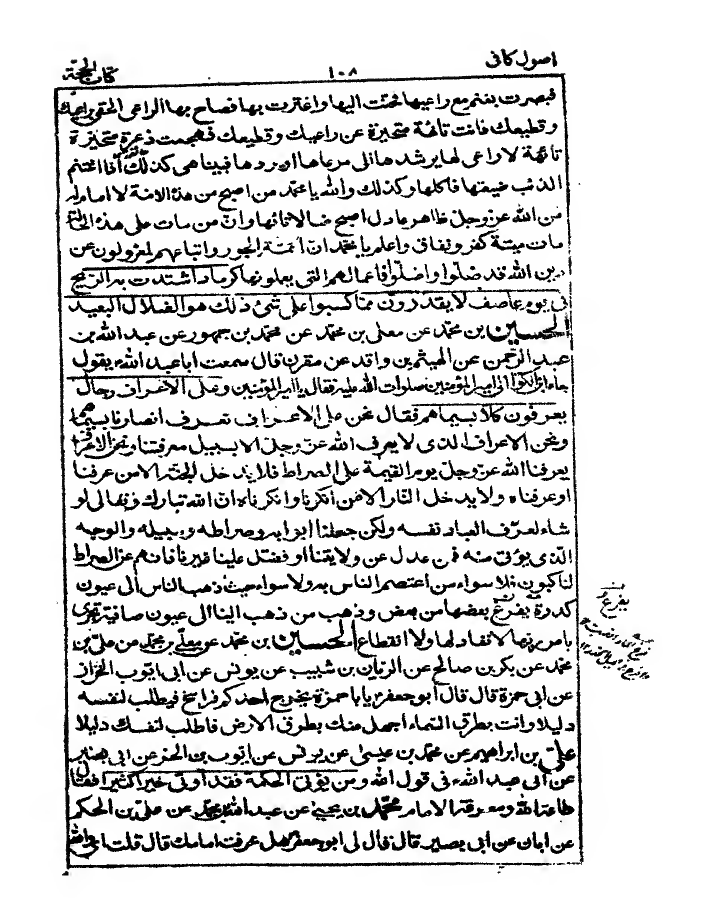 اصول كافى
١٠٨
كتاب الحجة
فبصرت بغنم مع راعيها فحنّت اليها واغترت بها فصاح بها الراعى الحقى براعيك
وقطيعك فانت تائهة متحيّرة عن راعيك وقطيعك فهجمت ذعرة متحيّرة
تائهة لا راعى لها يرشدها الى مرعاها او يردها فبينا هى كذلك اذا اغتنم
الذئب ضيعتها فاكلها وكذلك والله يا محمّد من اصبح من هذه الامّة لا امام له
من الله عزّ وجلّ ظاهر عادل اصبح ضالا تائها وان من مات على هذه الحالة
مات ميتة كفر ونفاق واعلم يا محمّد انّ ائمّة الجور واتباعهم لمعزولون عن
دين الله قد ضلّوا واضلّوا فاعمالهم التى يعملونها كرماد اشتدّت به الرّيح
فى يوم عاصف لا يقدرون ممّا كسبوا على شئ ذلك هو الضلال البعيد
الحسين بن محمّد عن معلّى بن محمّد عن محمّد بن جمهور عن عبد الله بن
عبد الرّحمن عن الهيثم بن واقد عن مقرن قال سمعت ابا عبد الله ع يقول
جاء ابن الكوّا الى امير المؤمنين صلوات الله عليه فقال يا امير المؤمنين وعلى الاعراف رجال
يعرفون كلا بسيماهم فقال نحن على الاعراف نعرف انصارنا بسيماهم
ونحن الاعراف الذى لا يعرف الله عزّ وجلّ الا بسبيل معرفتنا ونحن الاعراف
يعرفنا الله عزّ وجلّ يوم القيمة على الصراط فلا يدخل الجنّة الا من عرفنا
او عرفناه ولا يدخل النّار الا من انكرنا وانكرناه انّ الله تبارك وتعالى لو
شاء لعرّف العباد نفسه ولكن جعلنا ابوابه وصراطه وسبيله والوجه
الذى يؤتى منه فمن عدل عن ولايتنا او فضّل علينا غيرنا فانهم عن الصراط
لناكبون فلا سواء من اعتصم الناس به ولا سواء حيث ذهب الناس الى عيون
كدرة يفرغ بعضها من بعض وذهب من ذهب الينا الى عيون صافية تجرى
بامر ربّها لا نفاد لها ولا انقطاع الحسين بن محمّد عن معلّى بن محمّد عن علىّ بن
محمّد عن بكر بن صالح عن الرّيان بن شبيب عن يونس عن ابى ايّوب الخزّاز
عن ابى حمزة قال قال ابو جعفر ع يا با حمزة يخرج احدكم فراسخ فيطلب لنفسه
دليلا وانت بطرق السّماء اجهل منك بطرق الارض فاطلب لنفسك دليلا
علىّ بن ابراهيم عن محمّد بن عيسى عن يونس عن ايّوب بن الحرّ عن ابى بصير
عن ابى عبد الله ع فى قول الله ومن يؤتى الحكمة فقد اوتى خيرا كثيرا فقال
طاعة الله ومعرفة الامام محمّد بن يحيى عن عبد الله بن محمّد عن علىّ بن الحكم
عن ابان عن ابى بصير قال قال لى ابو جعفر ع هل عرفت امامك قال قلت اى والله
يفرغ